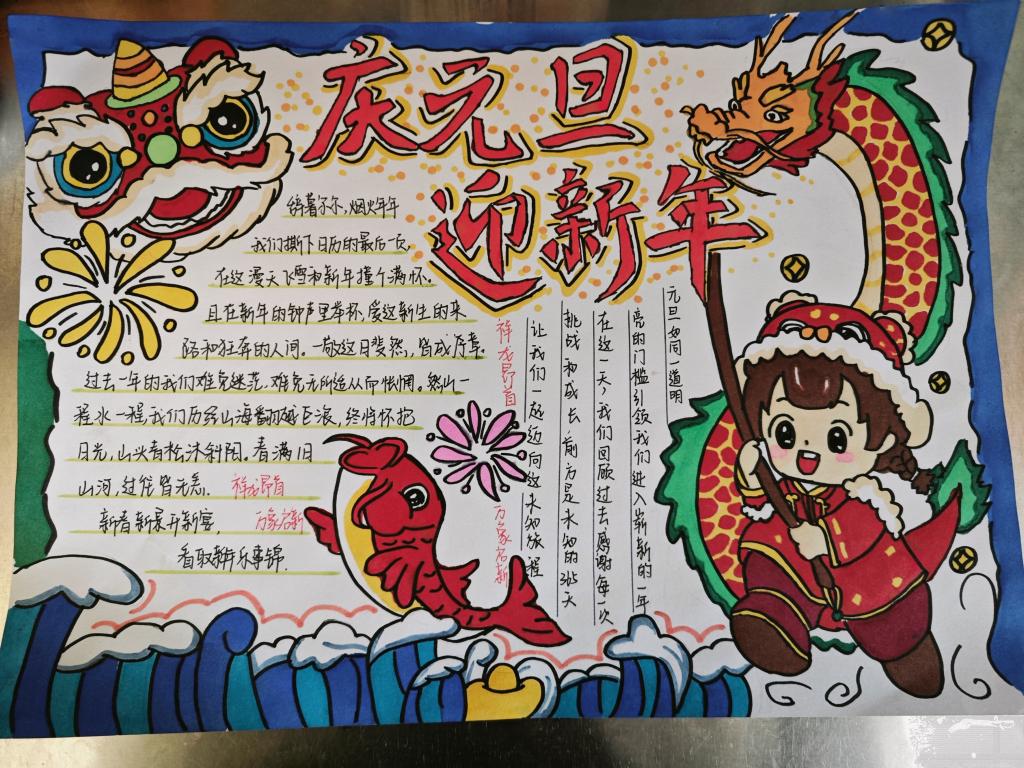 庆元旦
迎新年
绮薯尔尔,烟火年年
我们撕下日历的最后一页
在这漫天飞雪和新年撞个满怀.
且在新年的钟声里举杯,爱这新生的来
陌和狂奔的人间。一敬这日斐然,皆成序章
过去一年的我们难免迷茫,难免无所适从而怅惘.然山一
程水一程我们历经山海翻越巨浪,终将怀抱
日光,山头青松沐斜阳。看满旧
山河,过往皆无恙.
祥龙昂首
新春新景开新宴,
万象启新
看取新年乐事锦.
元旦如同一道明
亮的门槛引领我们进入崭新的一年
在这一天,我们回顾过去感谢每一次
挑战和成长前方是未知的365天
让我们一起迈向这未知旅程
祥龙昂首
万象启新